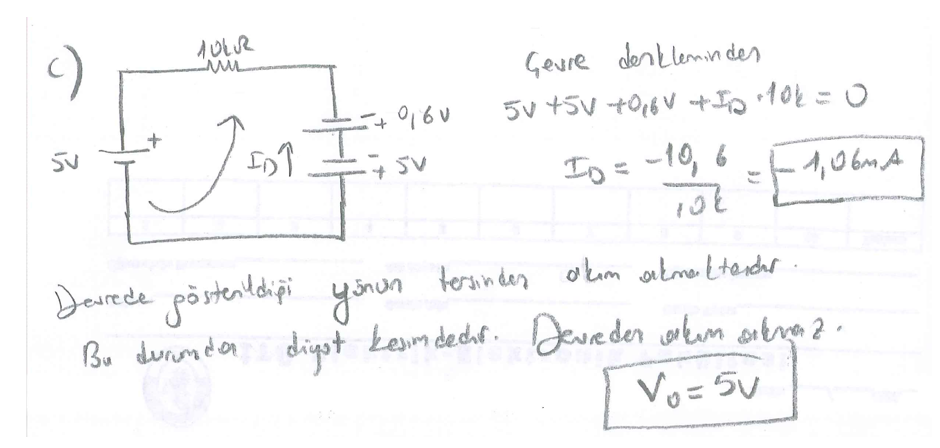 c)
10kΩ
5V
+
I_D↑
-+ 0,6V
-+ 5V
Çevre denkleminden
5V +5V +0,6V + I_D · 10k = 0
I_D = -10,6 / 10k = -1,06mA
Devrede gösterildiği yönün tersinden akım akmaktadır.
Bu durumda diyot kesimdedir. Devreden akım akmaz.
V_0 = 5V